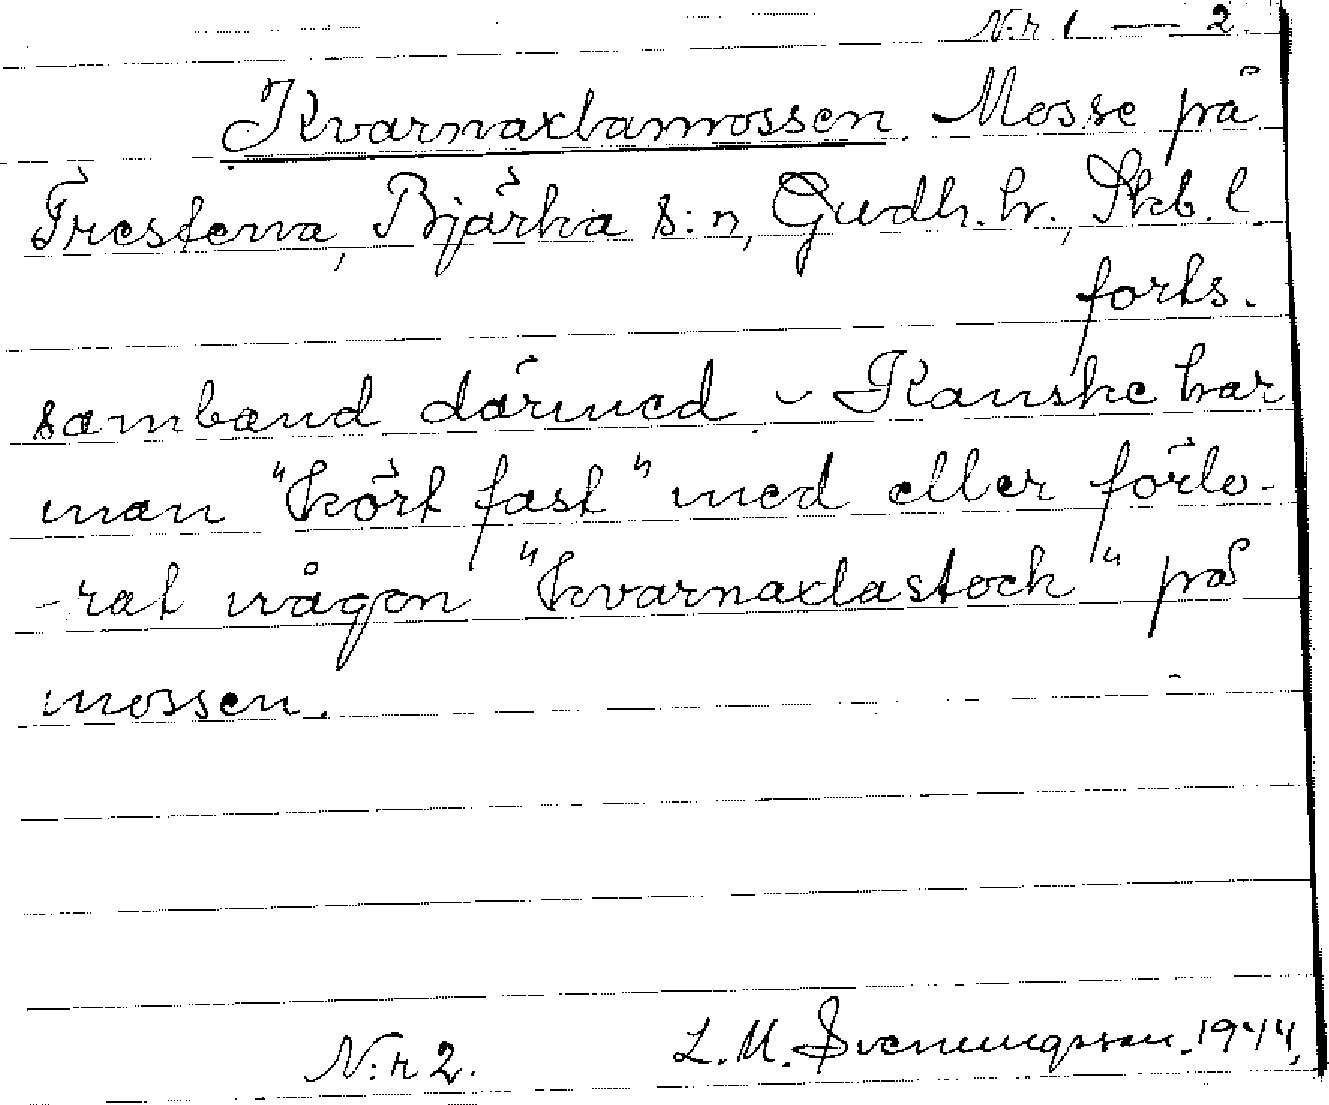 N:r 1 — 2.
Kvarnaxlamossen. Mosse på
Frestena, Bjärka s:n, Gudh. hr., Skb. l.
forts.
samband därmed – Kanske har
man "kört fast" med eller förlo-
-rat någon "kvarnaxlastock" på
mossen.
N:r 2. L. M. Svenungsson. 1944.